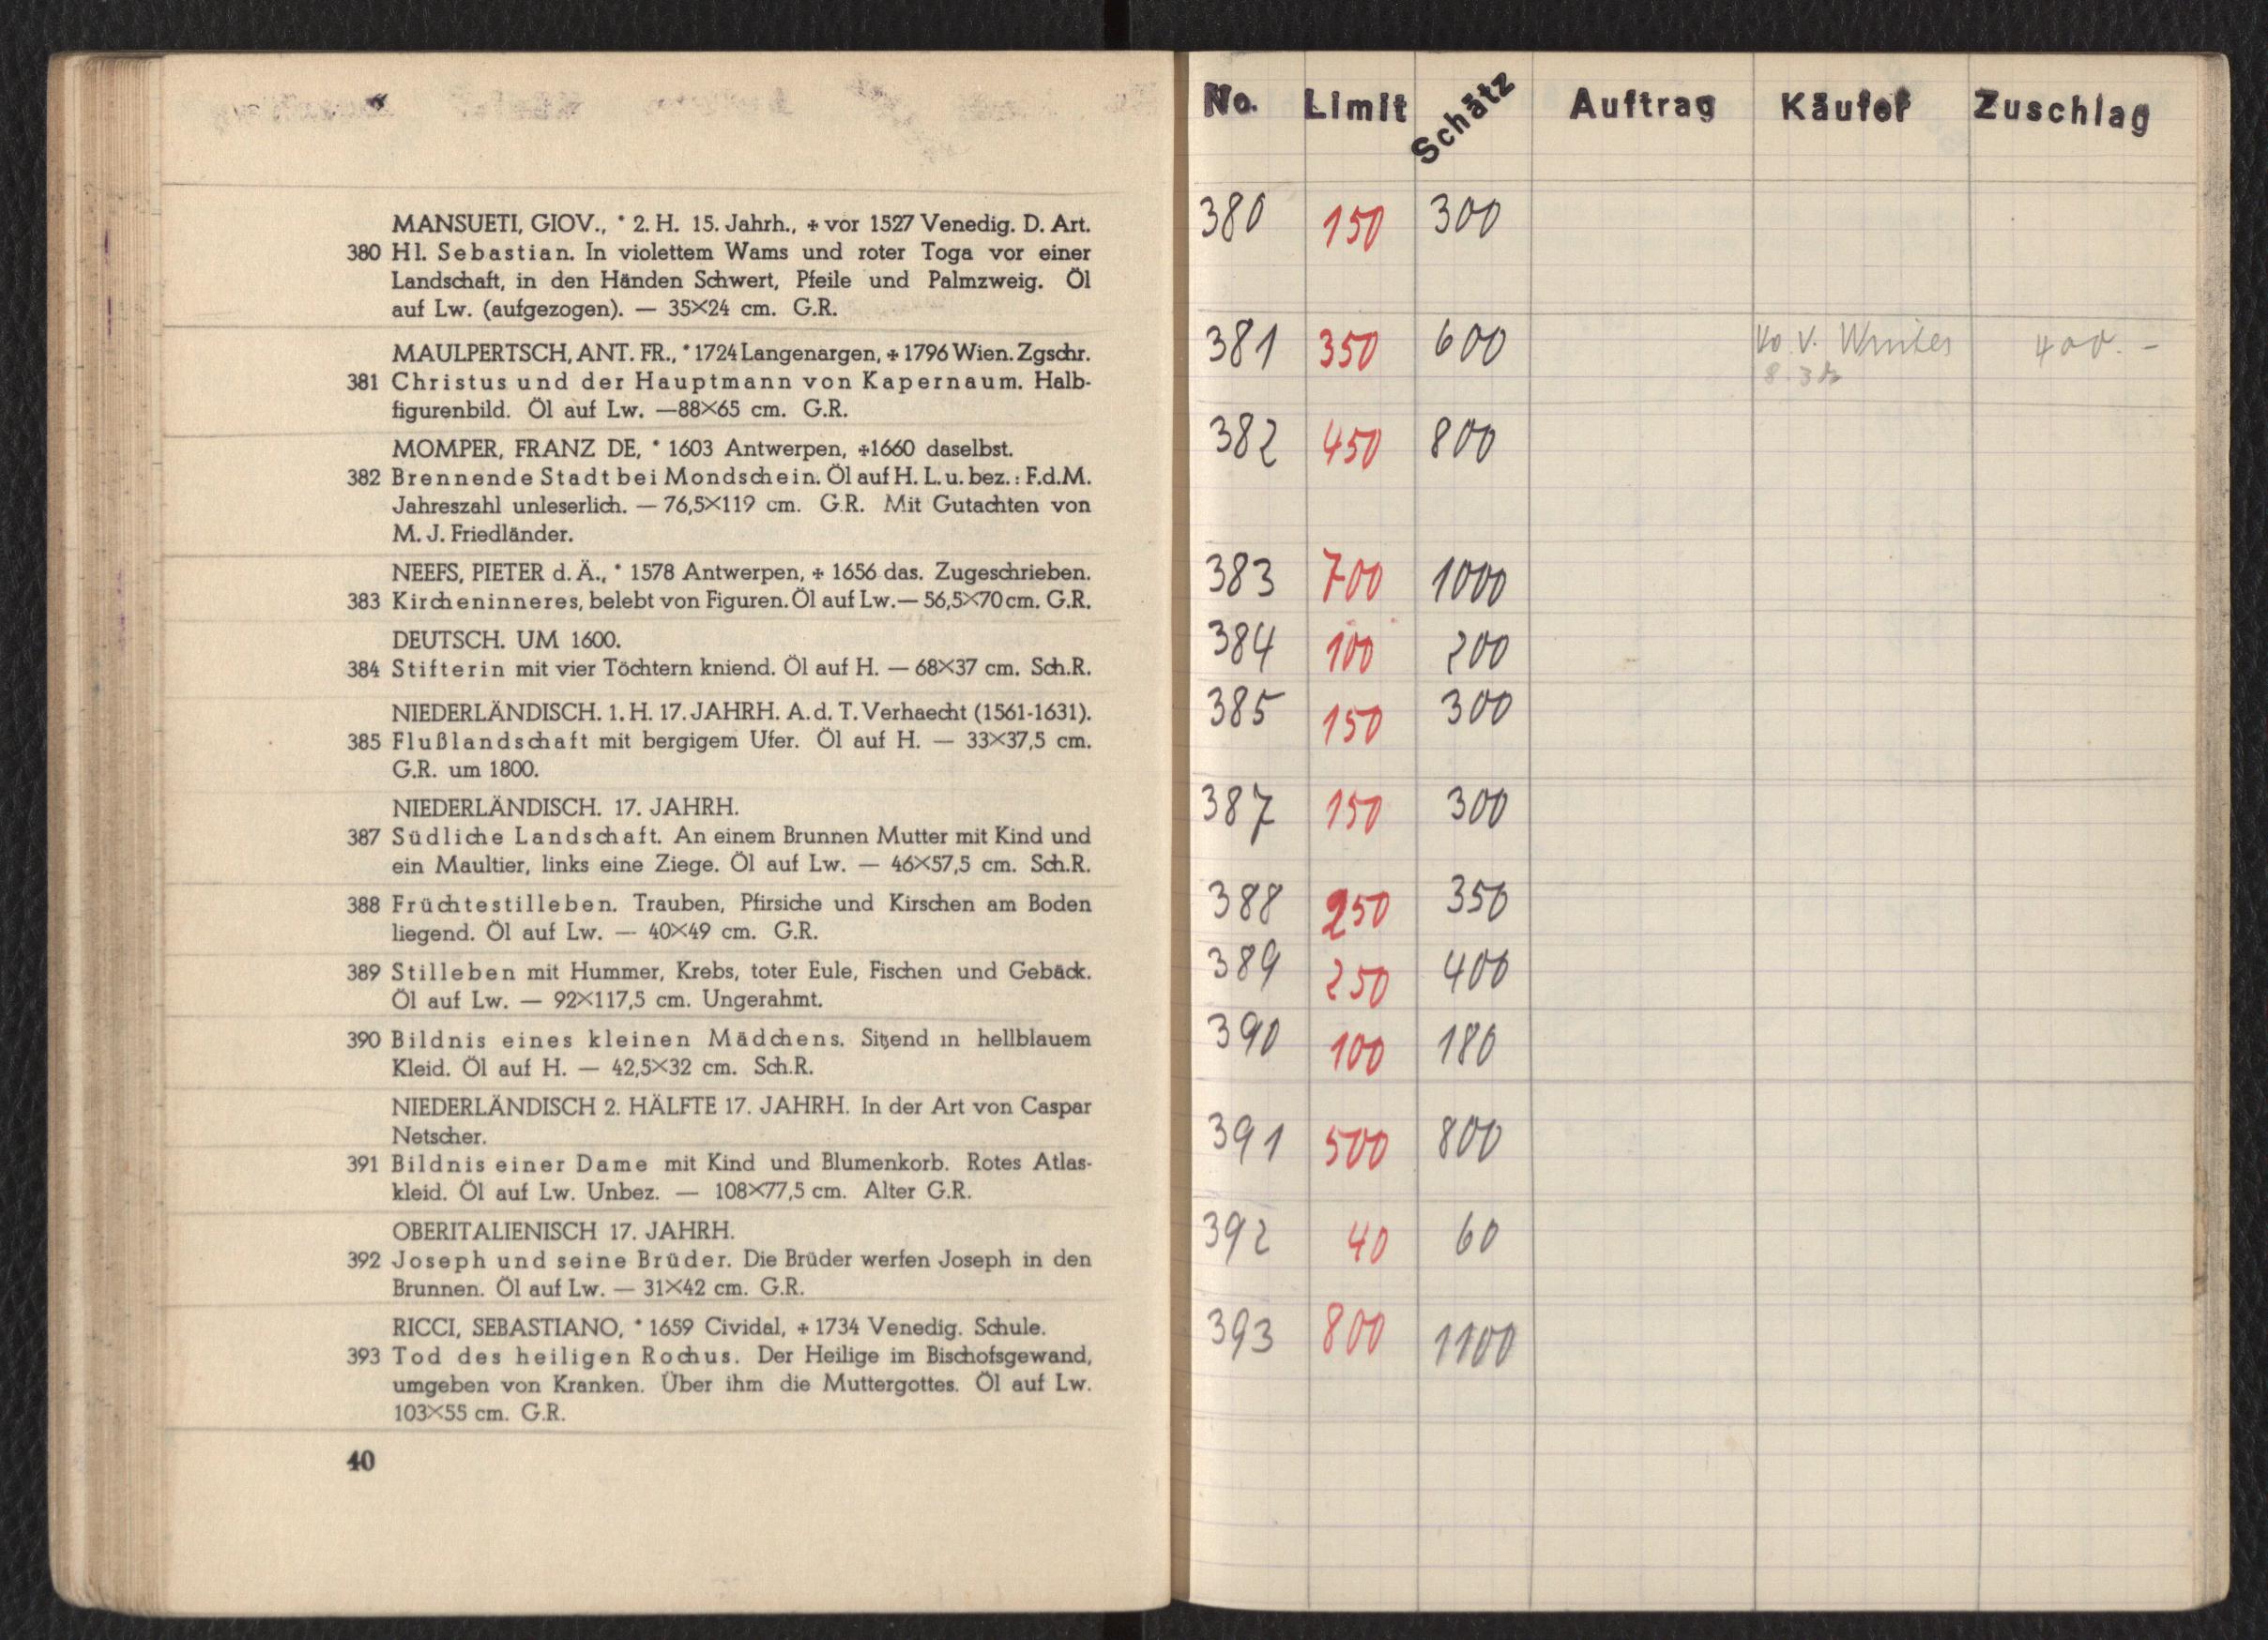 MANSUETI, GIOV., * 2. H. 15. Jahrh., + vor 1527 Venedig. D. Art.
380 Hl. Sebastian. In violettem Wams und roter Toga vor einer
Landschaft, in den Händen Schwert, Pfeile und Palmzweig. Öl
auf Lw. (aufgezogen). — 35×24 cm. G.R.
MAULPERTSCH, ANT. FR., * 1724 Langenargen, + 1796 Wien. Zgschr.
381 Christus und der Hauptmann von Kapernaum. Halb-
figurenbild. Öl auf Lw. —88×65 cm. G.R.
MOMPER, FRANZ DE, * 1603 Antwerpen, +1660 daselbst.
382 Brennende Stadt bei Mondschein. Öl auf H. L. u. bez.: F.d.M.
Jahreszahl unleserlich. — 76,5×119 cm. G.R. Mit Gutachten von
M. J. Friedländer.
NEEFS, PIETER d. Ä., * 1578 Antwerpen, + 1656 das. Zugeschrieben.
383 Kircheninneres, belebt von Figuren. Öl auf Lw.— 56,5×70 cm. G.R.
DEUTSCH. UM 1600.
384 Stifterin mit vier Töchtern kniend. Öl auf H. — 68×37 cm. Sch.R.
NIEDERLÄNDISCH. 1. H. 17. JAHRH. A. d. T. Verhaecht (1561-1631).
385 Flußlandschaft mit bergigem Ufer. Öl auf H. — 33×37,5 cm.
G.R. um 1800.
NIEDERLÄNDISCH. 17. JAHRH.
387 Südliche Landschaft. An einem Brunnen Mutter mit Kind und
ein Maultier, links eine Ziege. Öl auf Lw. — 46×57,5 cm. Sch.R.
388 Früchtestilleben. Trauben, Pfirsiche und Kirschen am Boden
liegend. Öl auf Lw. — 40×49 cm. G.R.
389 Stilleben mit Hummer, Krebs, toter Eule, Fischen und Gebäck.
Öl auf Lw. — 92×117,5 cm. Ungerahmt.
390 Bildnis eines kleinen Mädchens. Sitzend in hellblauem
Kleid. Öl auf H. — 42,5×32 cm. Sch.R.
NIEDERLÄNDISCH 2. HÄLFTE 17. JAHRH. In der Art von Caspar
Netscher.
391 Bildnis einer Dame mit Kind und Blumenkorb. Rotes Atlas-
kleid. Öl auf Lw. Unbez. — 108×77,5 cm. Alter G.R.
OBERITALIENISCH 17. JAHRH.
392 Joseph und seine Brüder. Die Brüder werfen Joseph in den
Brunnen. Öl auf Lw. — 31×42 cm. G.R.
RICCI, SEBASTIANO, * 1659 Cividal, + 1734 Venedig. Schule.
393 Tod des heiligen Rochus. Der Heilige im Bischofsgewand,
umgeben von Kranken. Über ihm die Muttergottes. Öl auf Lw.
103×55 cm. G.R.
40
No. Limit Schätz Auftrag Käufer Zuschlag
380 150 300
381 350 600 v. 400.-
382 450 800
383 700 1000
384 100 200
385 150 300
387 150 300
388 250 350
389 250 400
390 100 180
391 500 800
392 40 60
393 800 1100